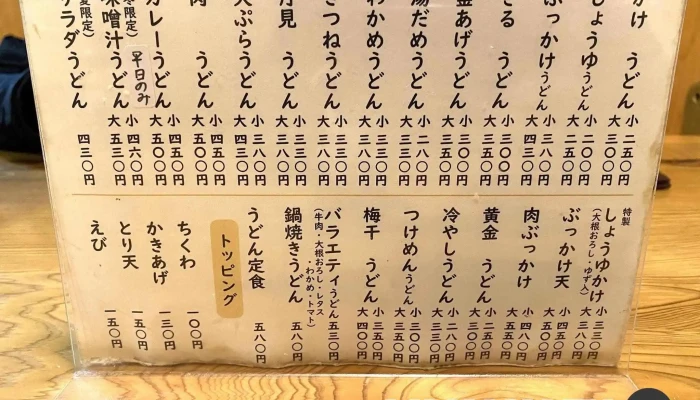 かけ うどん 小 二五〇円
大 三〇〇円
しょうゆうどん 小 二〇〇円
大 二五〇円
ぶっかけうどん 小 三八〇円
大 四三〇円
ざる うどん 小 三〇〇円
大 三五〇円
釜あげうどん 小 三〇〇円
大 三五〇円
湯だめうどん 小 二八〇円
大 三三〇円
わかめうどん 小 三三〇円
大 三八〇円
きつねうどん 小 三三〇円
大 三八〇円
月見 うどん 小 三三〇円
大 三八〇円
天ぷらうどん 小 三八〇円
大 四三〇円
肉 うどん 小 四五〇円
大 五〇〇円
カレーうどん 小 四五〇円
大 五〇〇円
冬限定)
平日のみ
味噌汁うどん 小 四六〇円
大 五三〇円
夏限定)
サラダうどん 四三〇円
特製
しょうゆかけ 小 三三〇円
(大根おろし・ゆず入) 大 三八〇円
ぶっかけ天 小 四五〇円
大 五〇〇円
肉ぶっかけ 小 四八〇円
大 五五〇円
黄金 うどん 小 三五〇円
大 四〇〇円
冷やしうどん 小 二八〇円
大 三五〇円
つけめんうどん 小 三〇〇円
大 三五〇円
梅干 うどん 小 三五〇円
大 四〇〇円
バラエティうどん 五三〇円
(牛肉・大根おろし・レタス
・わかめ・トマト)
鍋焼きうどん 五八〇円
うどん定食 五八〇円
トッピング
ちくわ 一〇〇円
かきあげ 一三〇円
とり天 一五〇円
えび 一五〇円